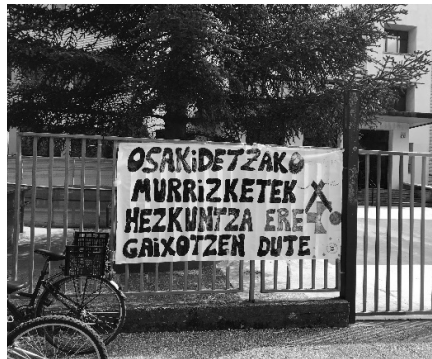 OSAKIDETZAKO
MURRIZKETEK
HEZKUNTZA ERE
GAIXOTZEN DUTE